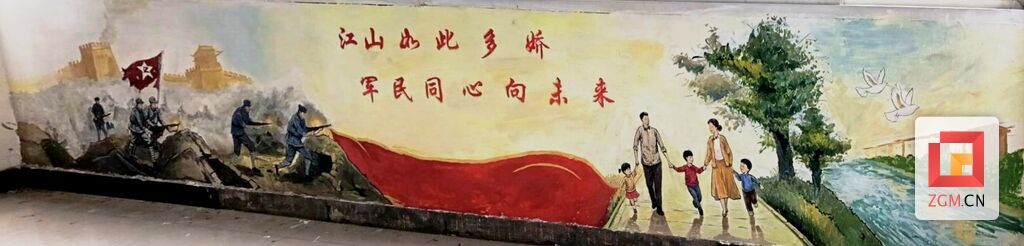 江山如此多娇
军民同心向未来
ZGM.CN